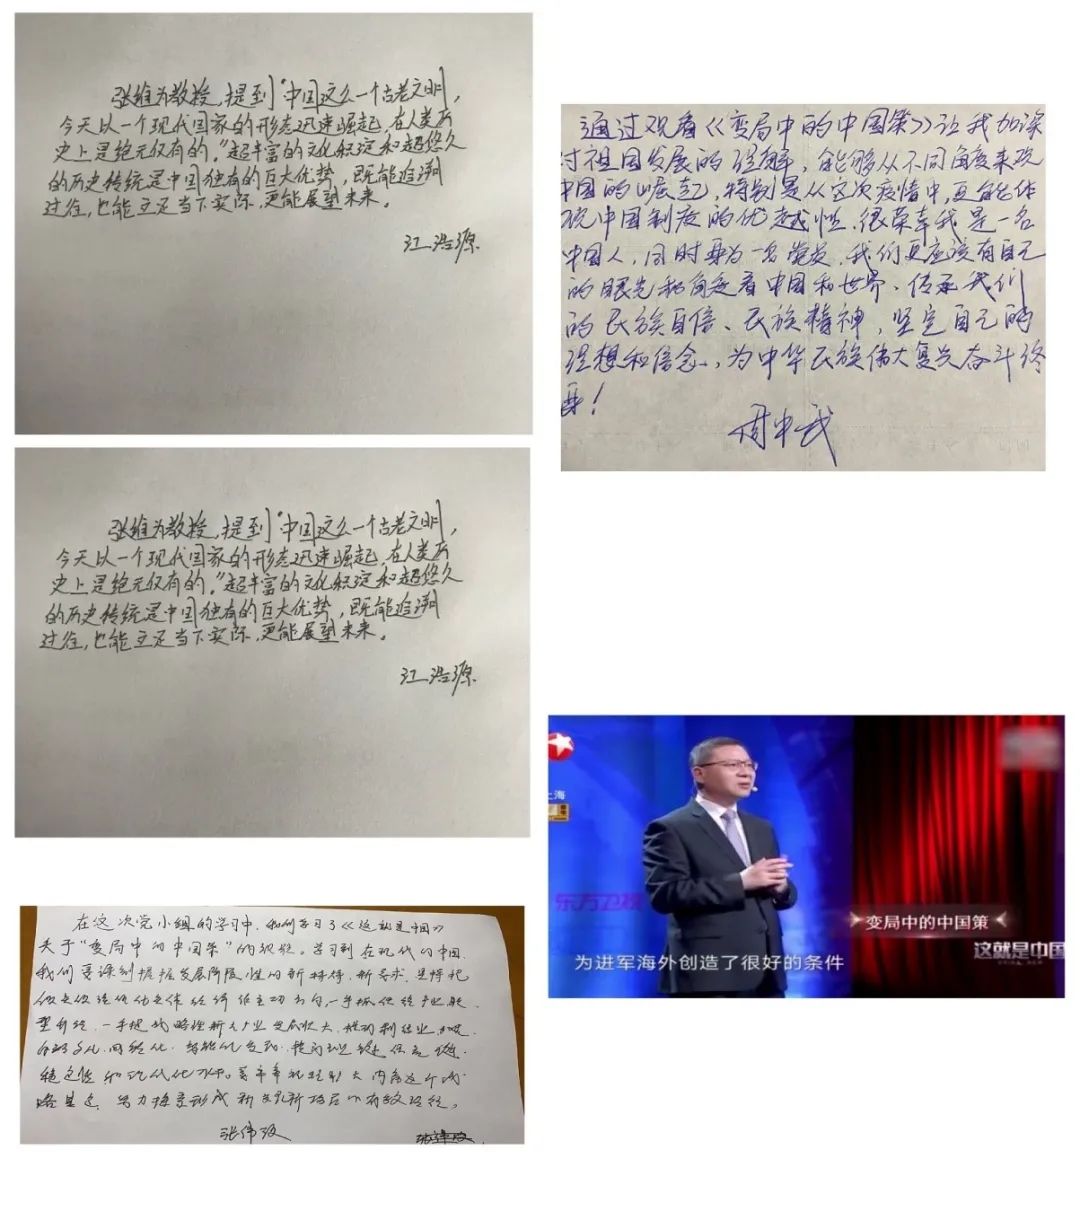 张维为教授,提到"中国这么一个古老文明,
今天以一个现代国家的形态迅速崛起,在人类历
史上是绝无仅有的。"超丰富的文化积淀和超悠久
的历史传统是中国独有的巨大优势,既能追溯
过往,也能立足当下实际,更能展望未来。
江浩源
通过观看《变局中的中国策》让我加深
对祖国发展的理解,能够从不同角度来观
中国的崛起,特别是从这次疫情中,更能体
现中国制度的优越性.很荣幸我是一名
中国人,同时身为一名党员,我们更应该有自己
的眼光和角度看中国和世界、传承我们
的民族自信、民族精神,坚定自己的
理想和信念,为中华民族伟大复兴奋斗终
身!
周中武
张维为教授,提到"中国这么一个古老文明,
今天以一个现代国家的形态迅速崛起,在人类历
史上是绝无仅有的。"超丰富的文化积淀和超悠久
的历史传统是中国独有的巨大优势,既能追溯
过往,也能立足当下实际,更能展望未来。
江浩源
上海
东方卫视
变局中的中国策
这就是中国
为进军海外创造了很好的条件
在这次党小组的学习中,我们学习了《这就是中国》
关于"变局中的中国策"的视频。学习到在现代的中国.
我们要深刻把握发展阶段性的新特征,新要求,坚持把
做实做强做优实体经济作主攻方向,一手抓传统产业转
型升级,一手把战略性新兴产业发展壮大,推动制造业
网络化、智能化发展,提
稳定性和现代化水平。要牢牢把握扩大内需这个战
略基点,努力探索形成新发展新格局的有效路径。
张伟